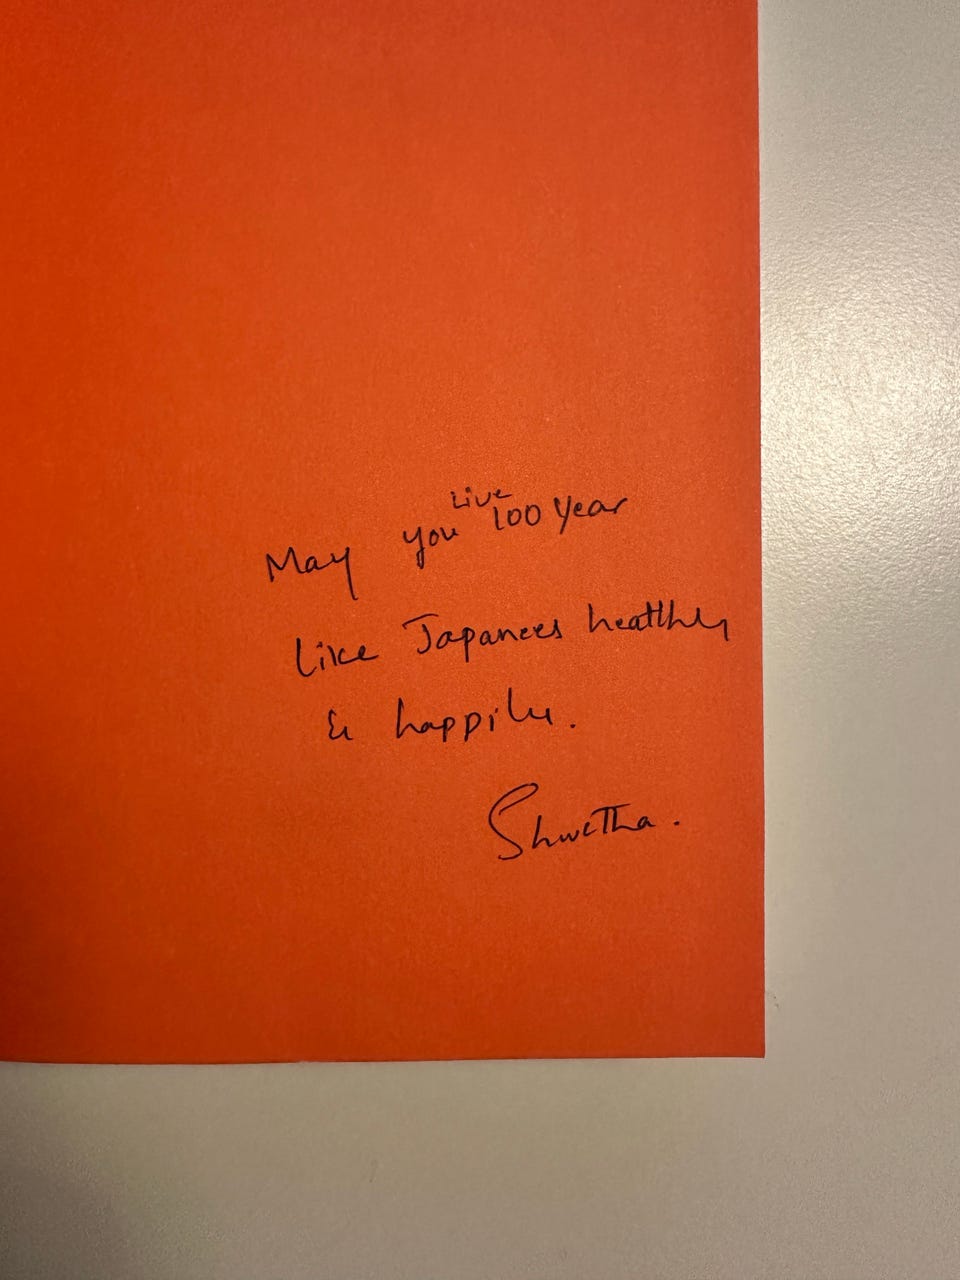 May you Live 100 Year
Like Japanees healthly
& happily.
Shwetha.